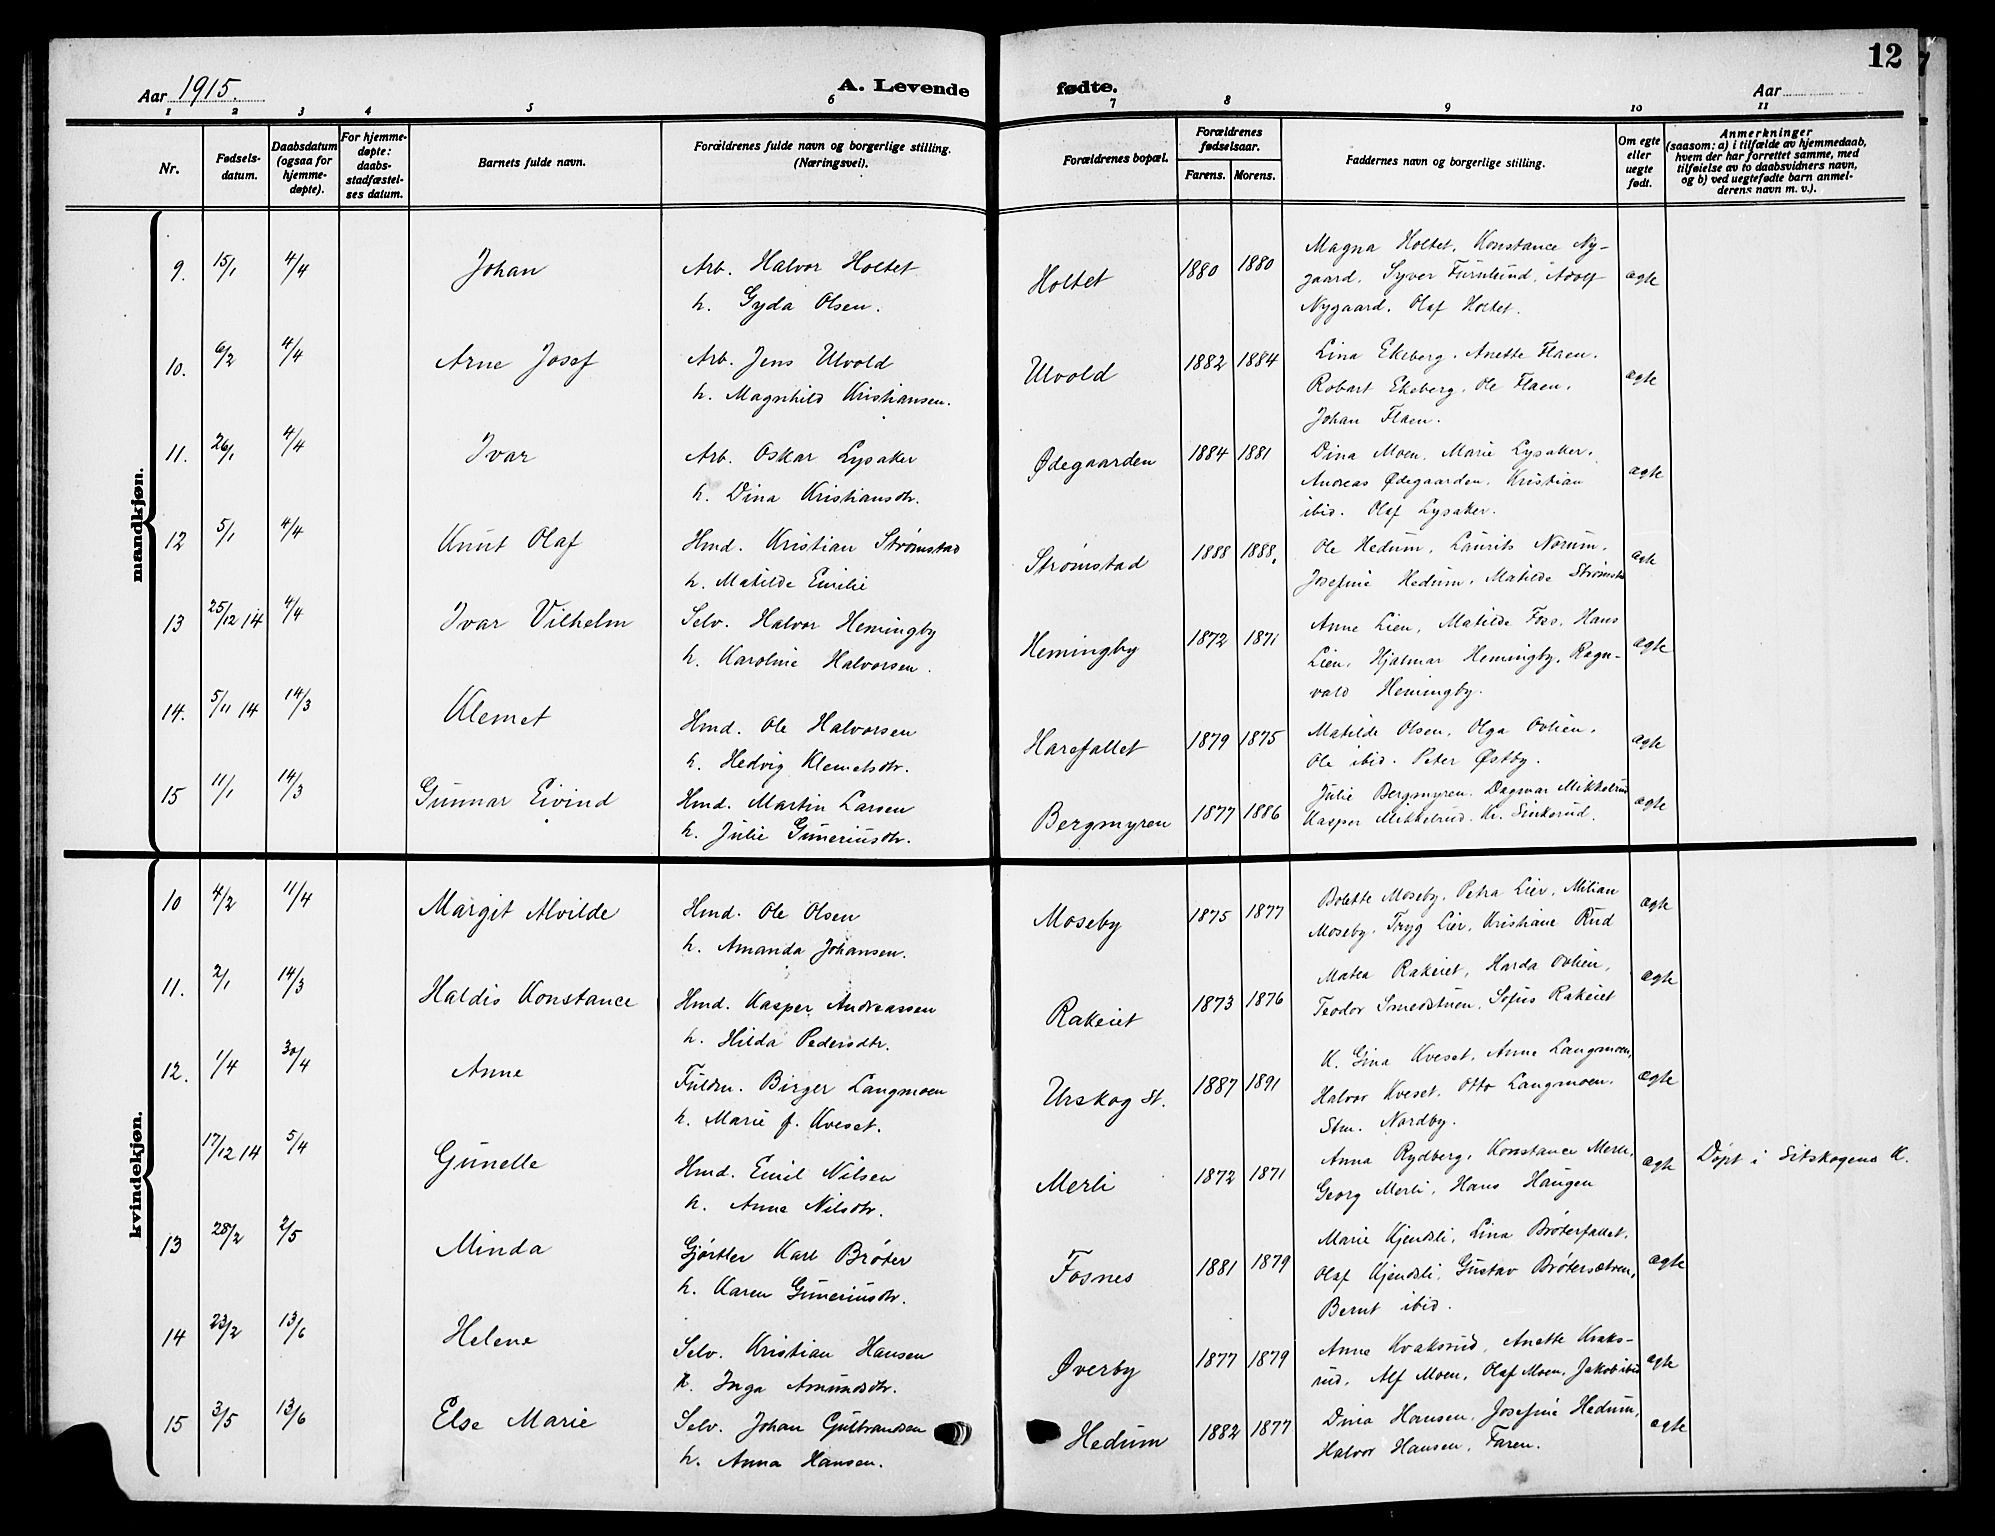 12
Aar 1915.
A. Levende fødte.
Aar
1 2 3 4 5 6 7 8 9 10 11
Nr.
Fødsels-
datum.
Daabsdatum
(ogsaa for
hjemme-
døpte).
For hjemme-
døpte:
daabs-
stadfæstel-
ses datum.
Barnets fulde navn.
Forældrenes fulde navn og borgerlige stilling.
(Næringsvei).
Forældrenes bopæl.
Forældrenes
fødselsaar.
Farens. Morens.
Faddernes navn og borgerlige stilling.
Om egte
eller
uegte
født.
Anmerkninger
(saasom: a) i tilfælde av hjemmedaab,
hvem der har forrettet samme, med
tilføielse av to daabsvidners navn,
og b) ved uegtefødte barn anmel-
derens navn m. v.).
mandkjøn.
9. 15/1 4/4 Johan Arb. Halvor Holtet
h. Gyda Olsen.
Holtet 1880 1880
Magna Holtet, Konstance Ny-
gaard, Syver Furulund, Adolf
Nygaard. Olaf Holtet.
ægte
10. 6/2 4/4 Arne Josef Arb. Jens Ulvold
h. Magnhild Kristiansen.
Ulvold 1882 1884
Lina Ekeberg. Anette Flaen.
Robart Ekeberg. Ole Flaen.
Johan Flaen.
ægte
11. 26/1 4/4 Ivar Arb. Oskar Lysaker
h. Dina Kristiansdtr.
Ødegaarden 1884 1881
Dina Moen, Marie Lysaker.
Andreas Ødegaarden, Kristian
ibid. Olaf Lysaker.
ægte
12 5/1 4/4 Knut Olaf Hmd. Kristian Strømstad
h. Matilde Emilie
Strømstad 1888 1888.
Ole Hedum, Laurits Norum.
Josefine Hedum. Matilde Strømsta
ægte
13 25/12 14 4/4 Ivar Vilhelm Selv. Halvor Hemingby
h. Karoline Halvorsen.
Hemingby 1872 1871
Anne Lien, Matilde Foss, Hans
Lien, Hjalmar Hemingby, Ragn-
vald Hemingby.
ægte
14. 5/11 14 14/3 Klemet Hmd. Ole Halvorsen
h. Hedvig Klemetsdtr.
Harefallet 1879 1875
Matilde Olsen, Olga Ovlien,
Ole ibid. Peter Østby.
ægte
15 11/1 14/3 Gunnar Eivind Hmd. Martin Larsen
h. Julie Guneriusdtr.
Bergmyren 1877 1886
Julie Bergmyren. Dagmar Mikkelrud
Kasper Mikkelrud. Kr. Sinkerud.
ægte
kvindekjøn.
10 4/2 11/4 Margit Alvilde Hmd. Ole Olsen
h. Amanda Johansen.
Moseby 1875 1877
Bolette Moseby, Petra Lier, Milian
Moseby, Tryg Lier, Kristiane Rud
ægte
11. 2/1 14/3 Haldis Konstance Hmd. Kasper Andreassen
h. Hilda Pedersdtr.
Rakeiet 1873 1876
Matea Rakeiet, Harda Ovlien,
Teodor Smedstuen, Sofus Rakeiet
ægte
12. 1/4 30/4 Anne Fuldm. Birger Langmoen
h. Marie f. Kveset.
Urskog st. 1887 1891
K. Gina Kveset. Anne Langmoen,
Halvor Kveset. Otto Langmoen.
Stm. Nordby.
ægte
17/12 14 5/4 Gunelle Hmd. Emil Nilsen
h. Anne Nilsdtr.
Merli 1872 1871
Anna Rydberg, Konstance Merli,
Georg Merli, Hans Haugen
ægte Døpt i Sitskogens K.
13 28/2 2/5 Minda Gjørtler Karl Brøter
h. Karen Guneriusdtr.
Fosnes 1881 1879
Marie Kjendsli, Lina Brøterfallet,
Olaf Kjendsli, Gustav Brøtersætren,
Bernt ibid.
ægte
14 23/2 13/6 Helene Selv. Kristian Hansen
h. Inga Amundsdtr.
Øverby 1877 1879
Anne Kraksrud, Anette Kraks-
rud, Alf Moen, Olaf Moen, Jakob ibid
ægte
15 3/5 13/6 Else Marie Selv. Johan Gulbrandsen
h. Anna Hansen.
Hedum 1882 1877
Dina Hansen, Josefine Hedum,
Halvor Hansen, Faren.
ægte